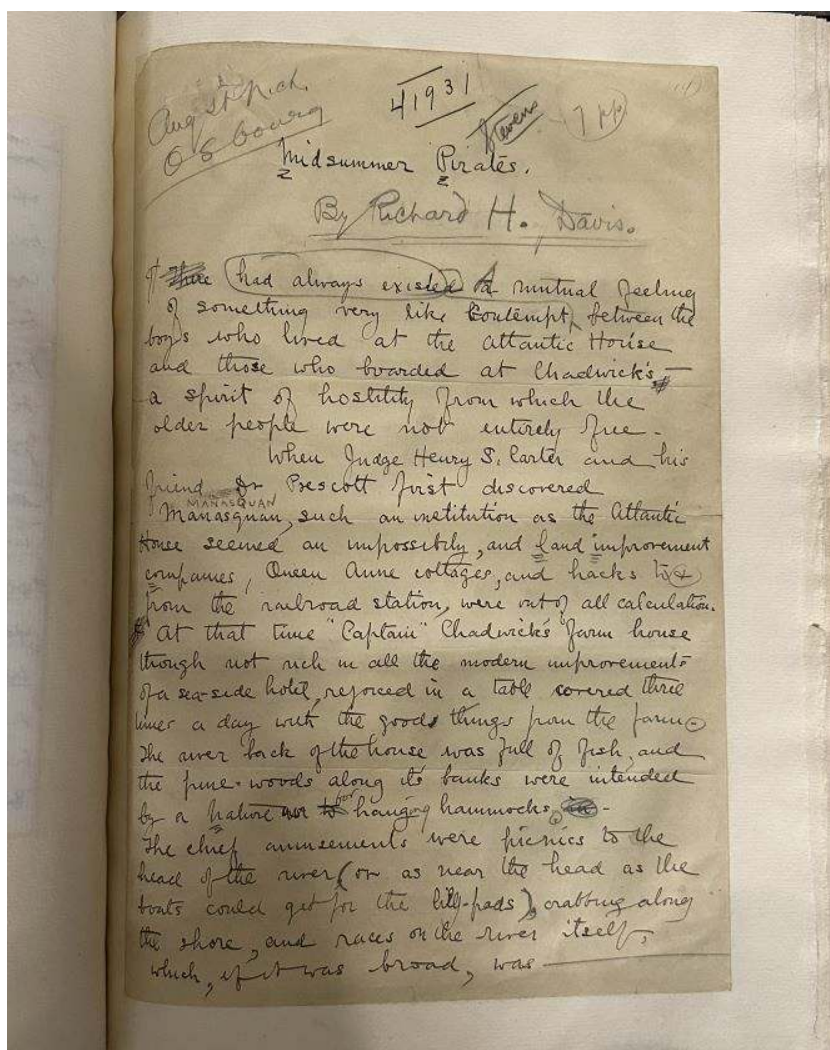 Aug St. Nich.
41931
Stevens
7 pp
(1)
Midsummer Pirates.
By Richard H. Davis.
had always existed A mutual feeling
of something very like contempt, between the
boys who lived at the Atlantic House
and those who boarded at Chadwick's —
a spirit of hostility from which the
older people were not entirely free -
When Judge Henry S. Carter and his
friend Dr Prescott first discovered
MANASQUAN
Manasquan, such an institution as the Atlantic
House seemed an impossibily, and land improvement
companies, Queen Anne cottages, and hacks to &
from the railroad station, were out of all calculation.
At that time "Captain" Chadwick's farm house
though not rich in all the modern improvements
of a sea-side hotel, rejoiced in a table covered three
times a day with the goods things from the farm.
The river back of the house was full of fish, and
the pine-woods along its banks were intended
by a Nature for hanging hammocks. -
The chief amusements were picnics to the
head of the river (or as near the head as the
boats could get for the lily-pads), crabbing along
the shore, and races on the river itself,
which, if it was broad, was